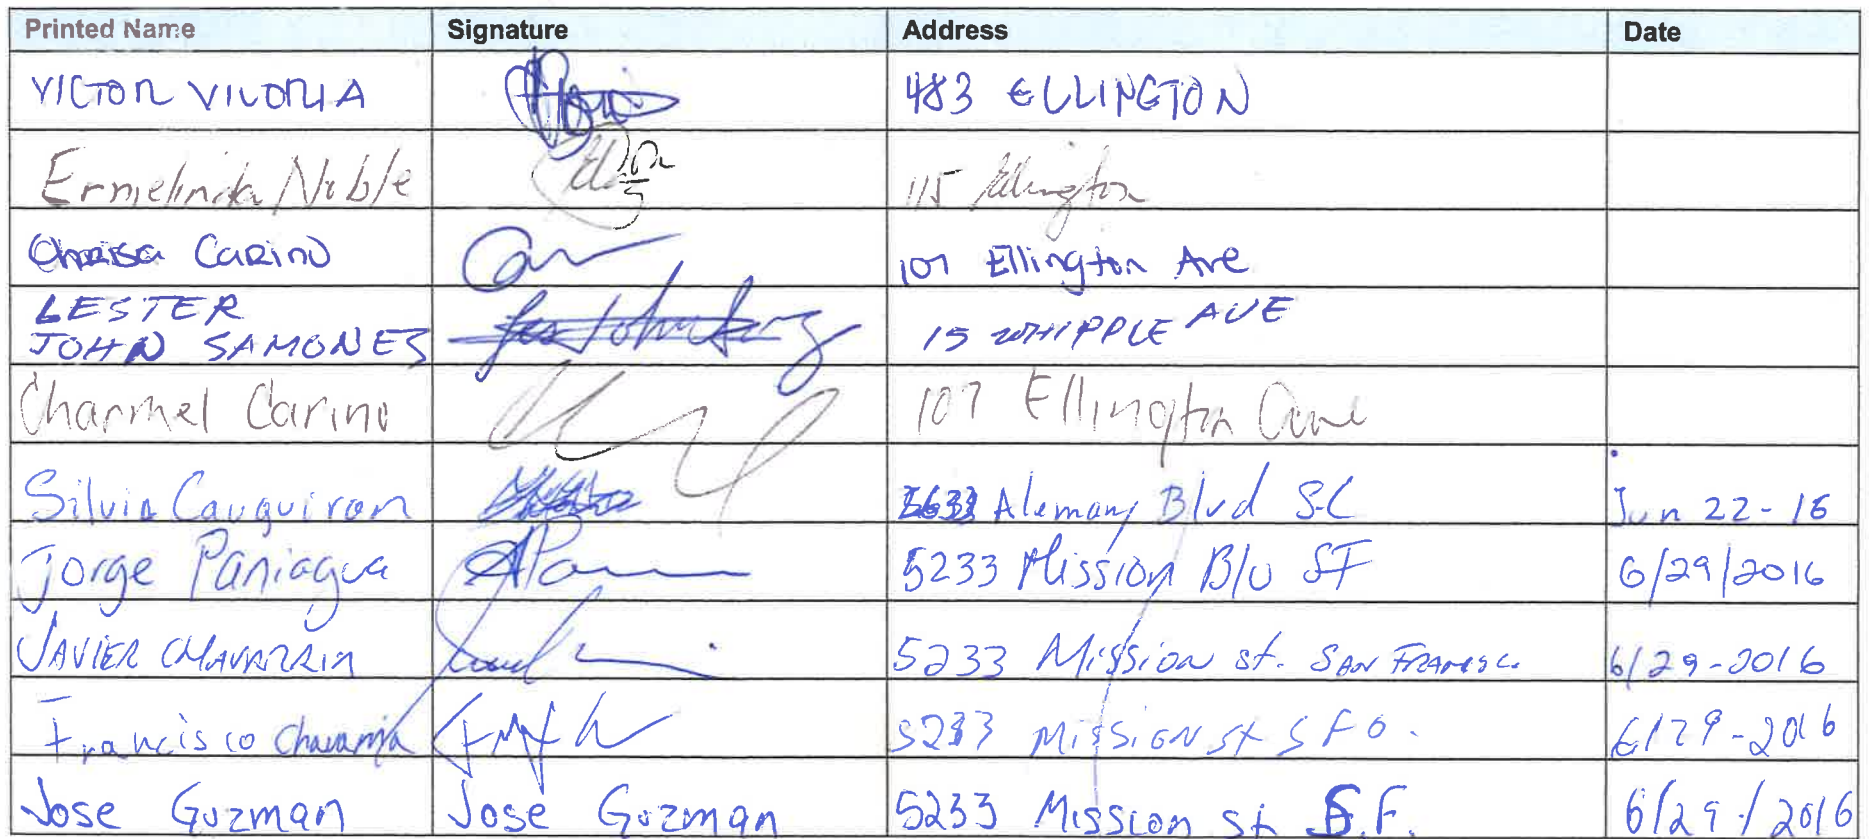 Printed Name Signature Address Date
VICTOR VILORIA 483 ELLINGTON
Ermelinda Noble 115 Ellington
Chrisa Carino 107 Ellington Ave
LESTER
JOHN SAMONES 15 WHIPPLE AVE
Charmel Carino 107 Ellington Ave
Silvia Cauguiran Alemany Blvd Jun 22-16
Jorge Paniagua 5233 Mission Blv SF 6/29/2016
JAVIER CHAVARRIA 5233 Mission st. SAN FRANSC. 6/29-2016
Francisco Chavarria 5233 Mission st SFO. 6/29-2016
Jose Guzman Jose Guzman 5233 Mission st S.F. 6/29/2016